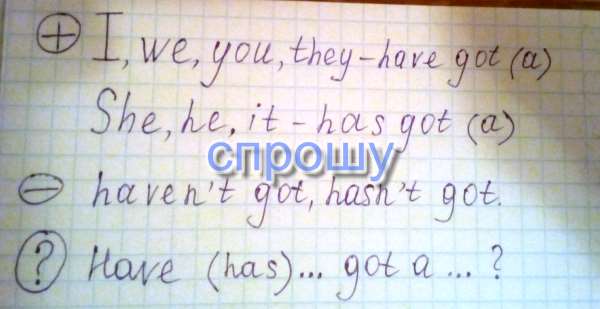 + I, we, you, they – have got (a)
She, he, it – has got (a)
спрошу
– haven't got, hasn't got.
? Have (has)... got a ... ?